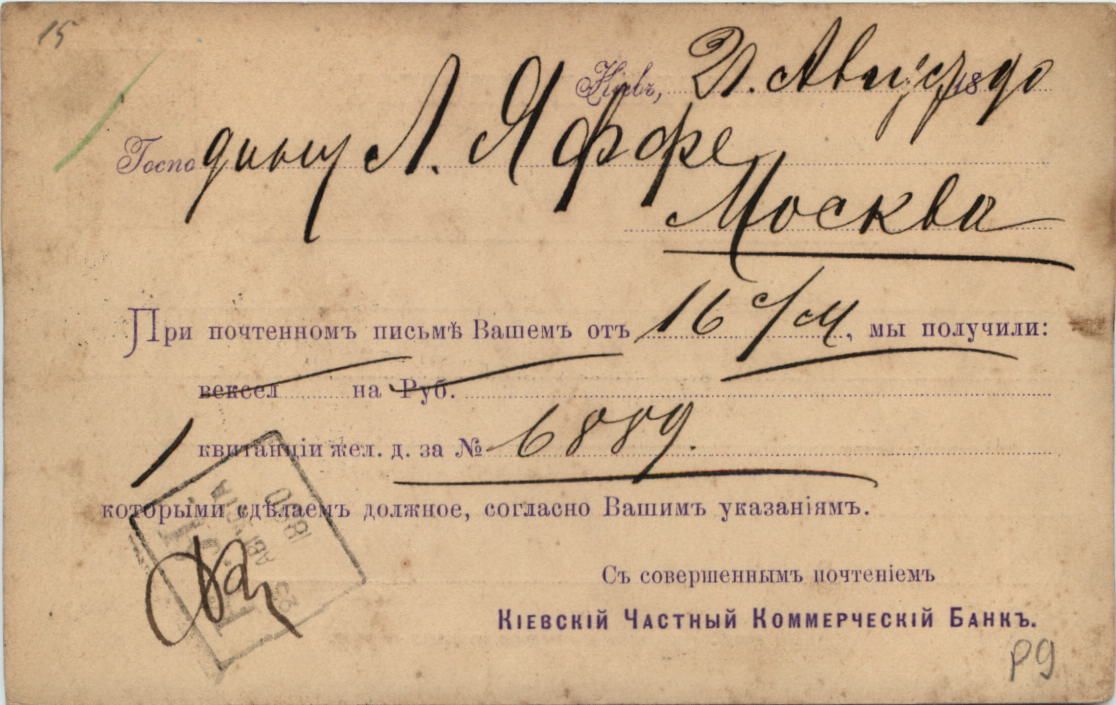 15
Кіевъ, 21. Август 1890
Господину Л. Яффе
Москва
При почтенномъ письмѣ Вашемъ отъ 16 с/м, мы получили:
вексел на Руб.
1 квитанціи жел. д. за № 6889.
которыми сдѣлаемъ должное, согласно Вашимъ указаніямъ.
АВГУСТА
1890
Съ совершеннымъ почтеніемъ
КІЕВСКІЙ ЧАСТНЫЙ КОММЕРЧЕСКІЙ БАНКЪ.
P9